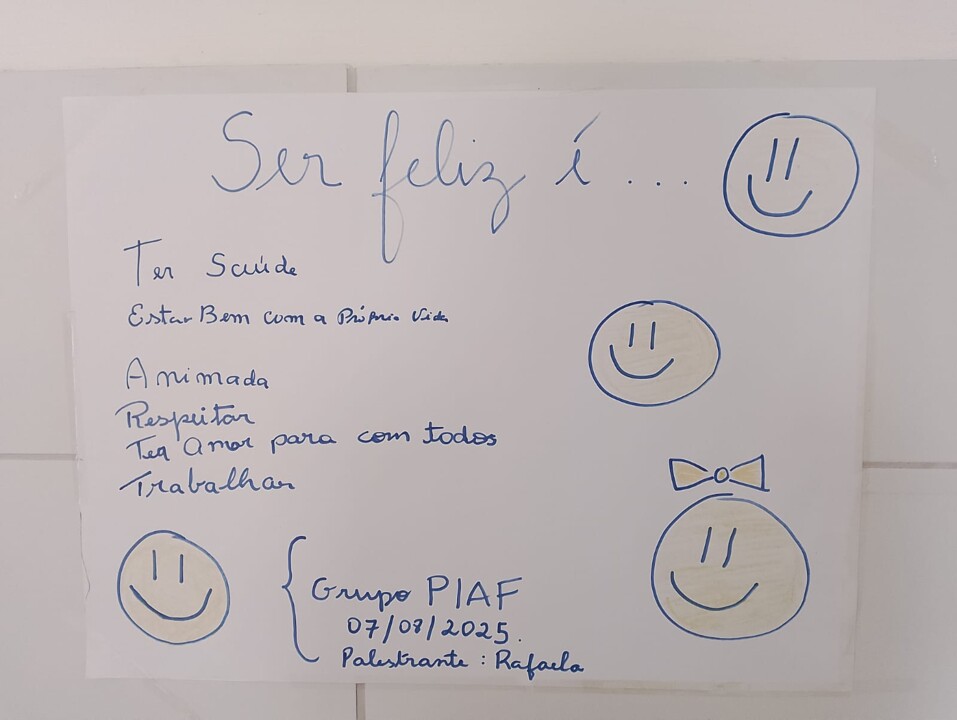 Ser feliz é ...
Ter Saúde
Estar Bem com a Própria Vida
Animada
Respeitar
Ter Amor para com todos
Trabalhar
Grupo PIAF
07/08/2025.
Palestrante : Rafaela